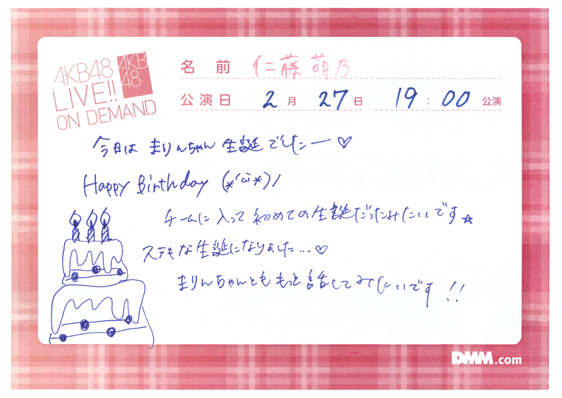 AKB48
LIVE!!
ON DEMAND
AKB
48
名前 仁藤萌乃
公演日 2月27日 19:00公演
今日は まりんちゃん 生誕 でしたー♡
Happy Birthday (*'ω'*)ノ
チームに入って初めての生誕だったみたいです☆
ステキな生誕になりました…♡
まりんちゃんとももっと話してみたいです!!
DMM.com